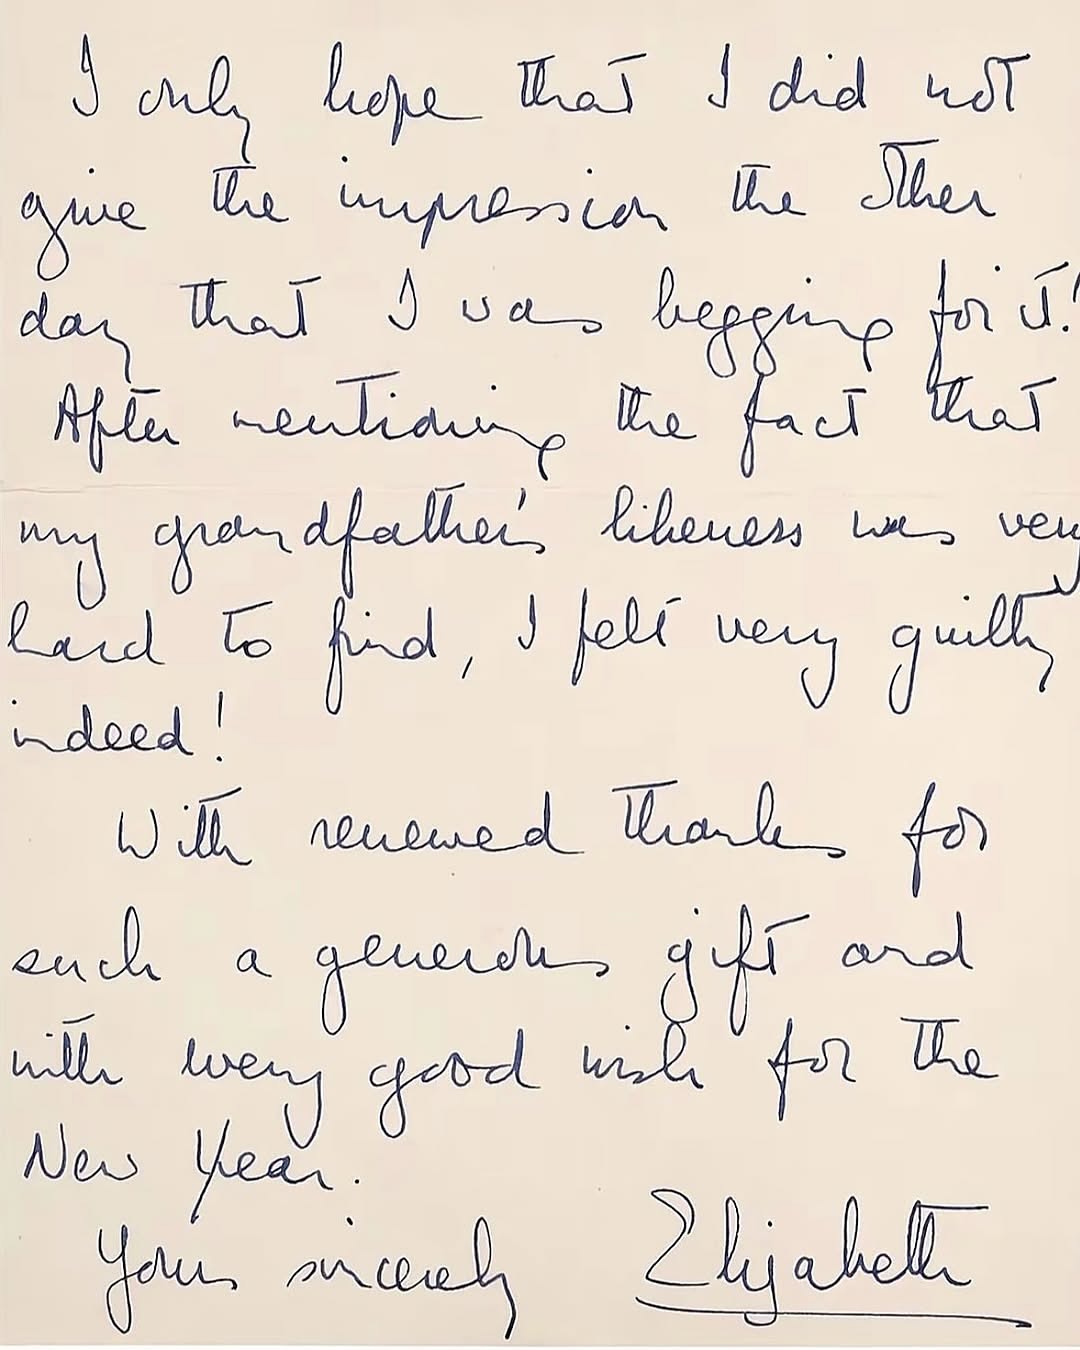 I only hope that I did not
give the impression the other
day that I was begging for it!
After mentioning the fact that
my grandfather's likeness was very
hard to find, I felt very guilty
indeed!
With renewed thanks for
such a generous gift and
with every good wish for the
New Year.
Yours sincerely Elizabeth